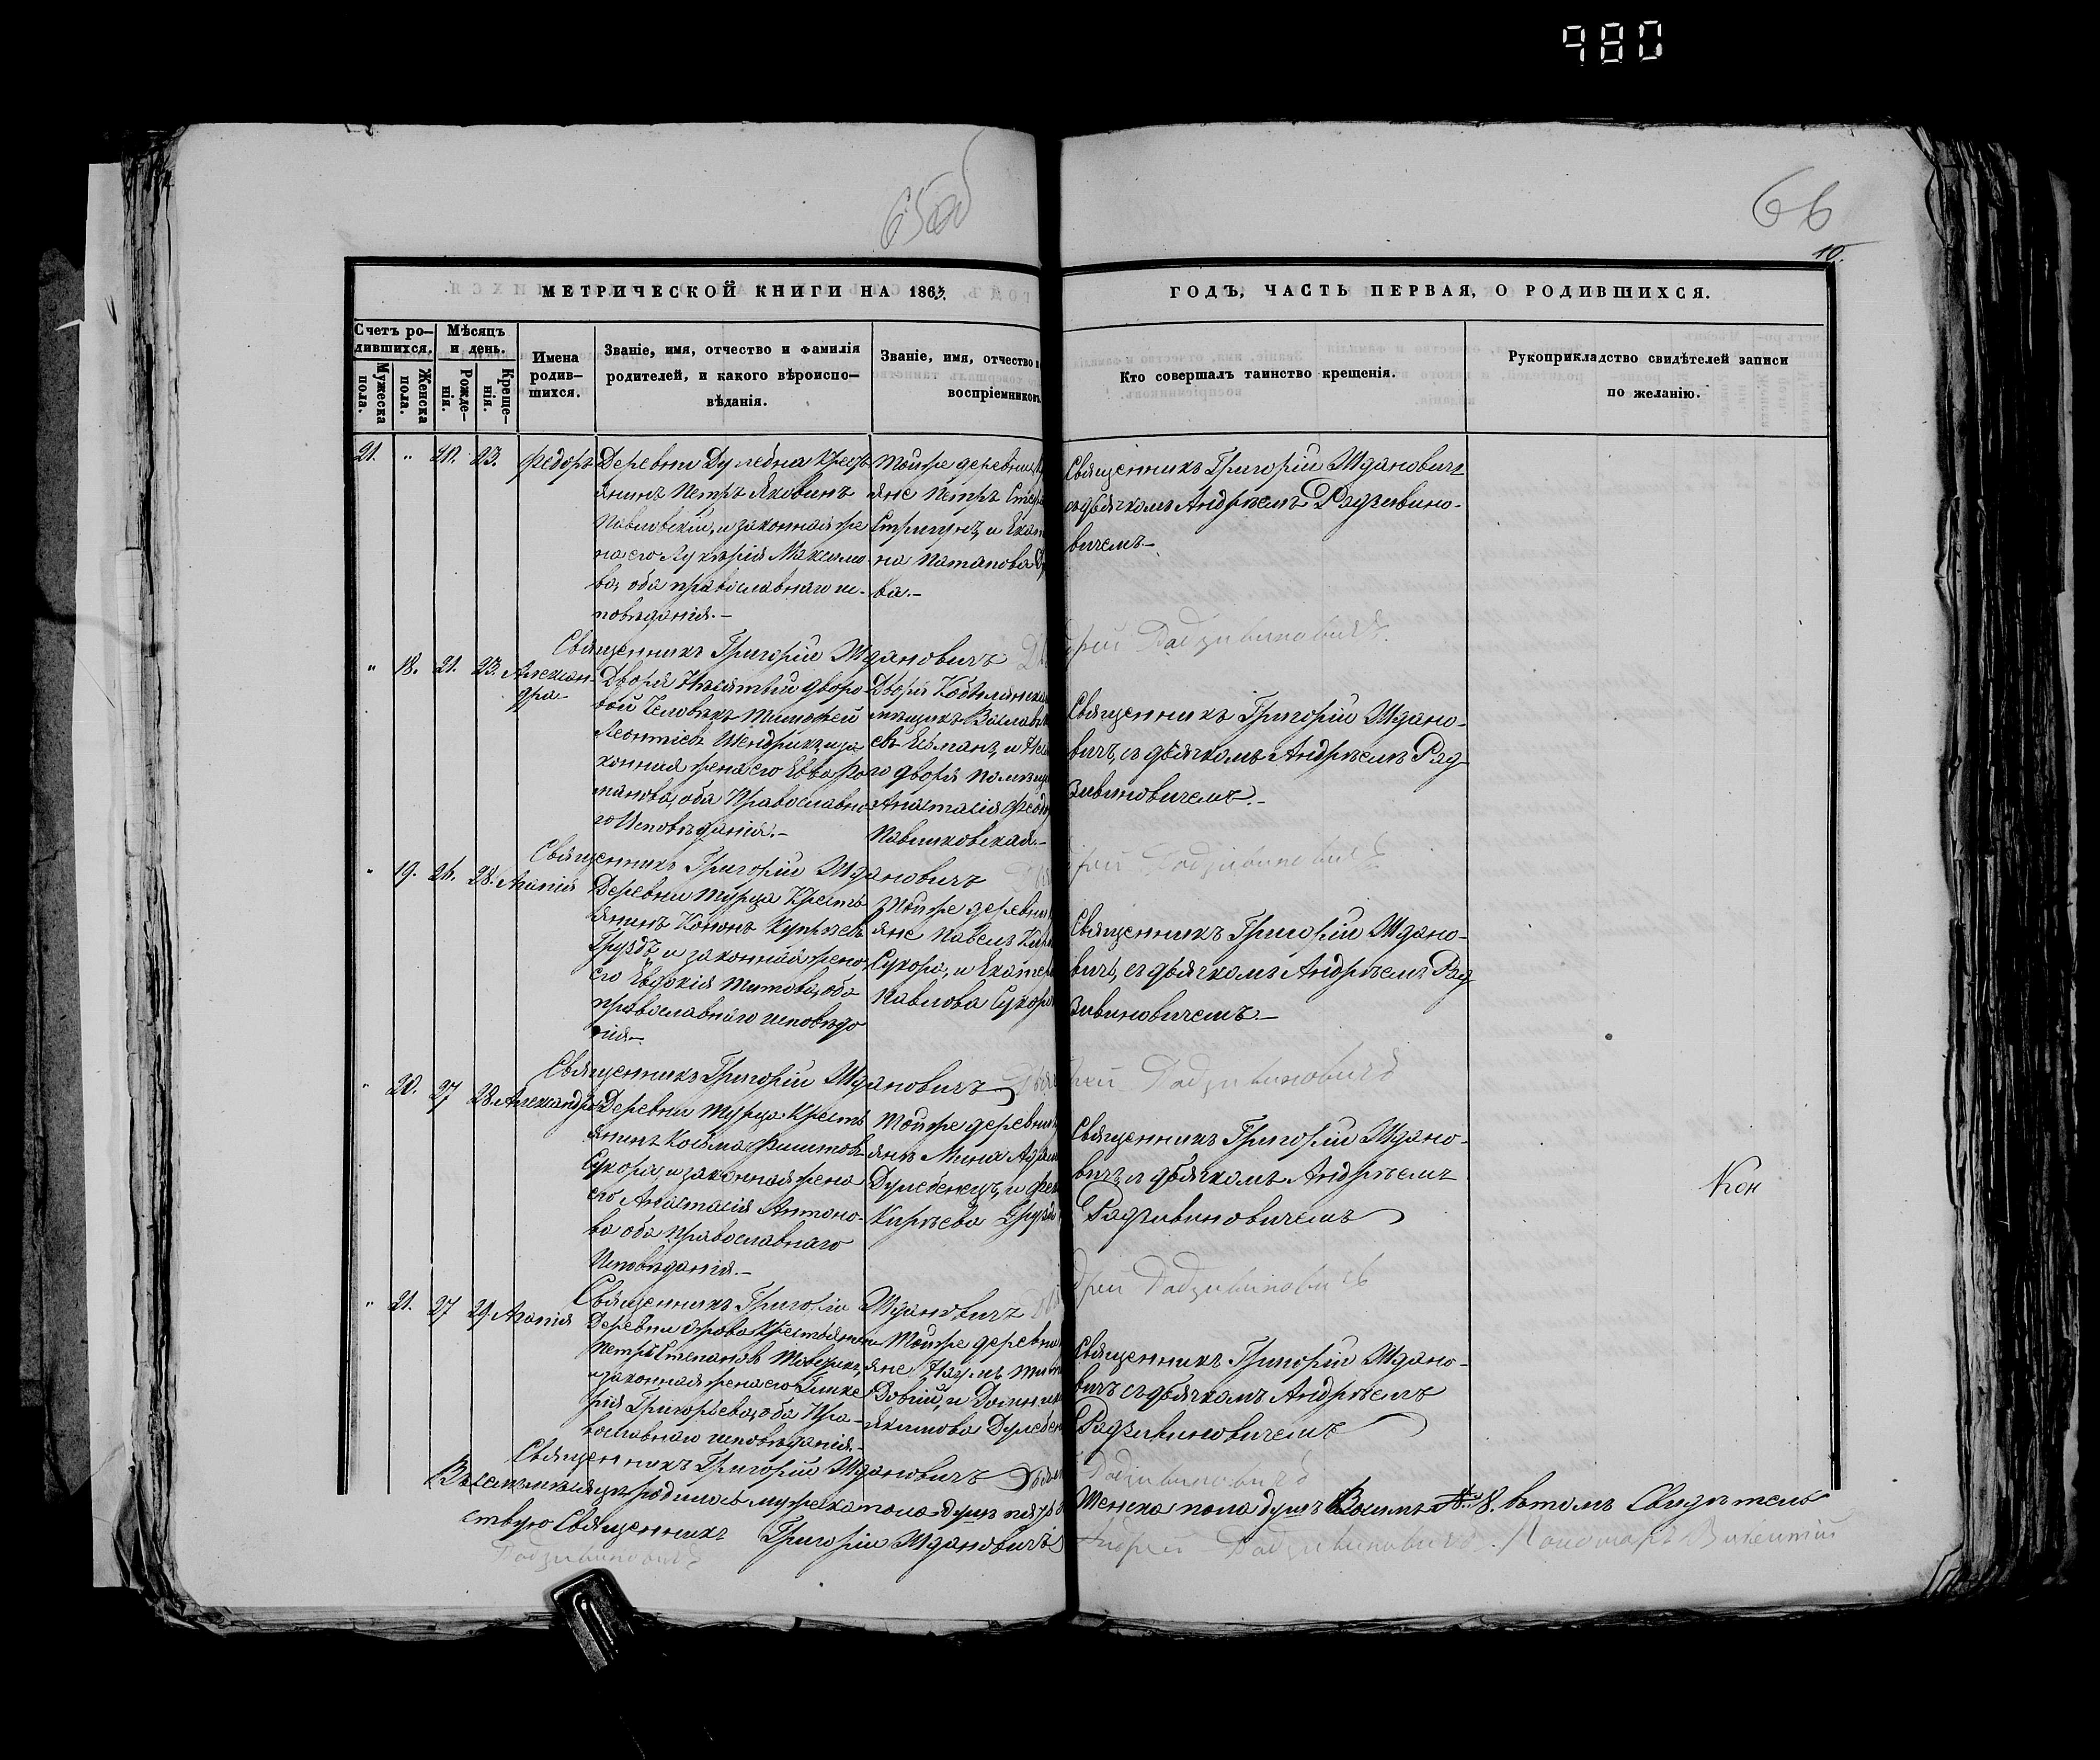 980
65об
66
10.
МЕТРИЧЕСКОЙ КНИГИ НА 1863.
ГОДЪ, ЧАСТЬ ПЕРВАЯ, О РОДИВШИХСЯ.
Счетъ ро-
дившихся.
Мужеска
пола.
Женска
пола.
Мѣсяцъ
и день.
Рожде-
нія.
Креще-
нія.
Имена
родив-
шихся.
Званіе, имя, отчество и фамилія
родителей, и какого вѣроиспо-
вѣданія.
Званіе, имя, отчество и
воспріемниковъ.
Кто совершалъ таинство крещенія.
Рукоприкладство свидѣтелей записи
по желанію.
21. " 23. Федоръ
Деревни Дулебна Кресть
янинъ Петръ Яковинъ
Павловскій, и законная же
на его Лукерія Максимо
ва, оба православнаго ис-
повѣданія.-
Тойже деревни
яне Петръ
Стригунъ, и
на Потапова
ва.-
Священникъ Григорій Жданович
съ дьячкомъ Андреемъ Радзивино-
вичемъ.-
Священникъ Григорій Ждановичъ
дрей Радзивиновичъ.
" 18. 21. 23. Алексан-
дра
Двора дворо-
вой человѣкъ Тимофей
Леонтіевъ Шендрикъ, и за
конная жена его Евва Ро
манова, оба Православна
го Исповѣданія.-
Двора
евъ и
го двора помѣщи
Анастасія Феодо
Павликовская.-
Священникъ Григорій Ждано-
вичъ, съ дьячкомъ Андреемъ Рад
зивиновичемъ.-
Священникъ Григорій Ждановичъ
дрей Радзивиновичъ
" 19. 26. 28. Агапія
Деревни Турца Кресть
янинъ Кононъ Купреевъ
Груздъ, и законная жена
его Евдокія Титова, оба
православнаго исповѣда
нія.-
Тойже деревни
яне Павелъ
Сухора, и Екате
Павлова Сухора
Священникъ Григорій Ждано-
вичъ, съ дьячкомъ Андреемъ Рад
зивиновичемъ.-
Священникъ Григорій Ждановичъ
рей Радзивиновичъ
" 20. 27 28. Александра
Деревни Турца Кресть
янинъ Косьма
Сухора, и законная жена
его Анастасія Антоно-
ва оба Православнаго
Исповѣданія.-
Тойже деревни
янъ Мина Адам
Дулебенецъ, и
Кирѣева Грузд
Священникъ Григорій Ждано-
вичъ съ дьячкомъ Андреемъ
Радзивиновичемъ
Священникъ Григорій Ждановичъ
дрей Радзивиновичъ
" 21. 27 29. Агапія
Деревни Крестьянин
Петръ Степановъ
законная жена его
рія Григорьева, оба Пра-
вославнаго исповѣданія.-
Тойже деревни
яне Наумъ Тит
и Домник
Якимова Дулебен
Священникъ Григорій Ждано-
вичъ съ дьячкомъ Андреемъ
Радзивиновичемъ
Священникъ Григорій Ждановичъ
Радзивиновичъ
мѣсяцѣ родилось мужеска пола душъ
Женска пола душъ Восемь 8. въ томъ Свидѣтель
ствую Священникъ Григорій Ждановичъ
Андрей Радзивиновичъ. Пономарь Викентій
Радзивиновичъ